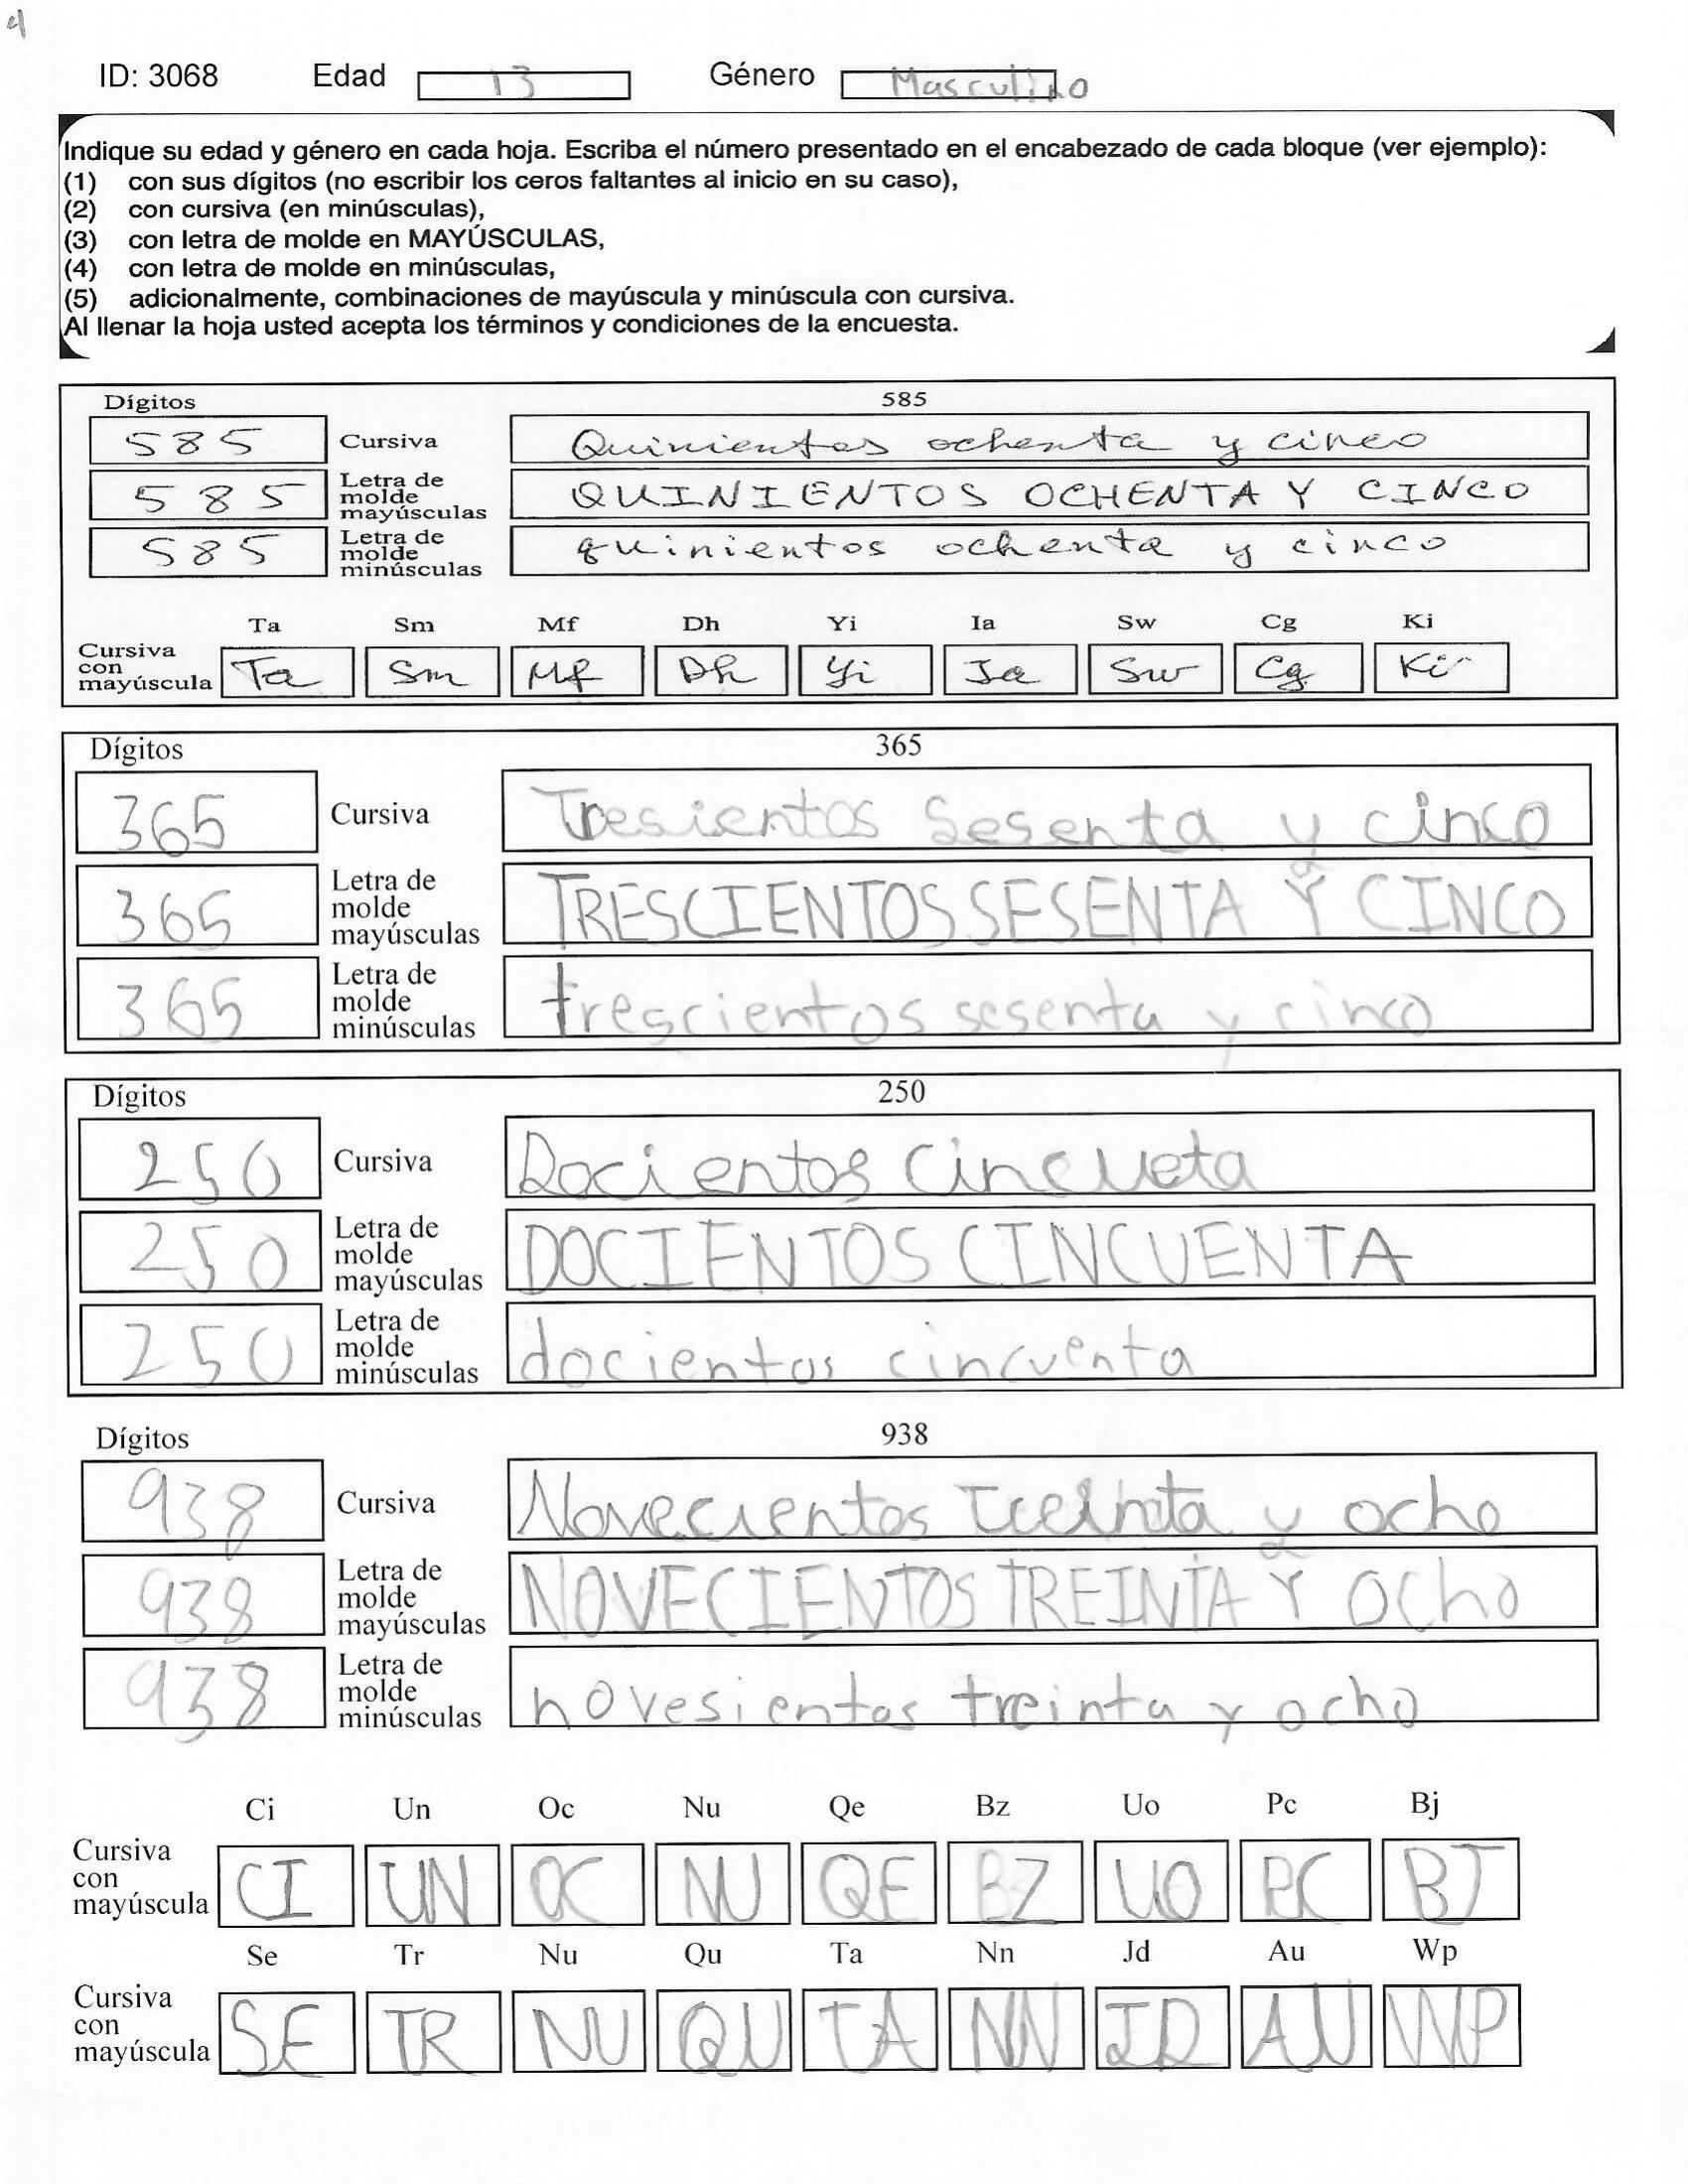 4
ID: 3068 Edad 13 Género Masculino
Indique su edad y género en cada hoja. Escriba el número presentado en el encabezado de cada bloque (ver ejemplo):
(1) con sus dígitos (no escribir los ceros faltantes al inicio en su caso),
(2) con cursiva (en minúsculas),
(3) con letra de molde en MAYÚSCULAS,
(4) con letra de molde en minúsculas,
(5) adicionalmente, combinaciones de mayúscula y minúscula con cursiva.
Al llenar la hoja usted acepta los términos y condiciones de la encuesta.
Dígitos 585
585 Cursiva Quinientos ochenta y cinco
585 Letra de molde mayúsculas QUINIENTOS OCHENTA Y CINCO
585 Letra de molde minúsculas quinientos ochenta y cinco
Ta Sm Mf Dh Yi Ia Sw Cg Ki
Cursiva con mayúscula Ta Sm Mf Dh Yi Ia Sw Cg Ki
Dígitos 365
365 Cursiva Tresientos Sesenta y cinco
365 Letra de molde mayúsculas TRESCIENTOS SESENTA Y CINCO
365 Letra de molde minúsculas trescientos sesenta y cinco
Dígitos 250
250 Cursiva Docientos cincueta
250 Letra de molde mayúsculas DOCIENTOS CINCUENTA
250 Letra de molde minúsculas docientos cincuenta
Dígitos 938
938 Cursiva Novecientos Treinta y ocho
938 Letra de molde mayúsculas NOVECIENTOS TREINTA Y OCho
938 Letra de molde minúsculas novesientos treinta y ocho
Ci Un Oc Nu Qe Bz Uo Pc Bj
Cursiva con mayúscula CI UN OC NU QE BZ UO PC BJ
Se Tr Nu Qu Ta Nn Jd Au Wp
Cursiva con mayúscula SE TR NU QU TA NN JD AU WP